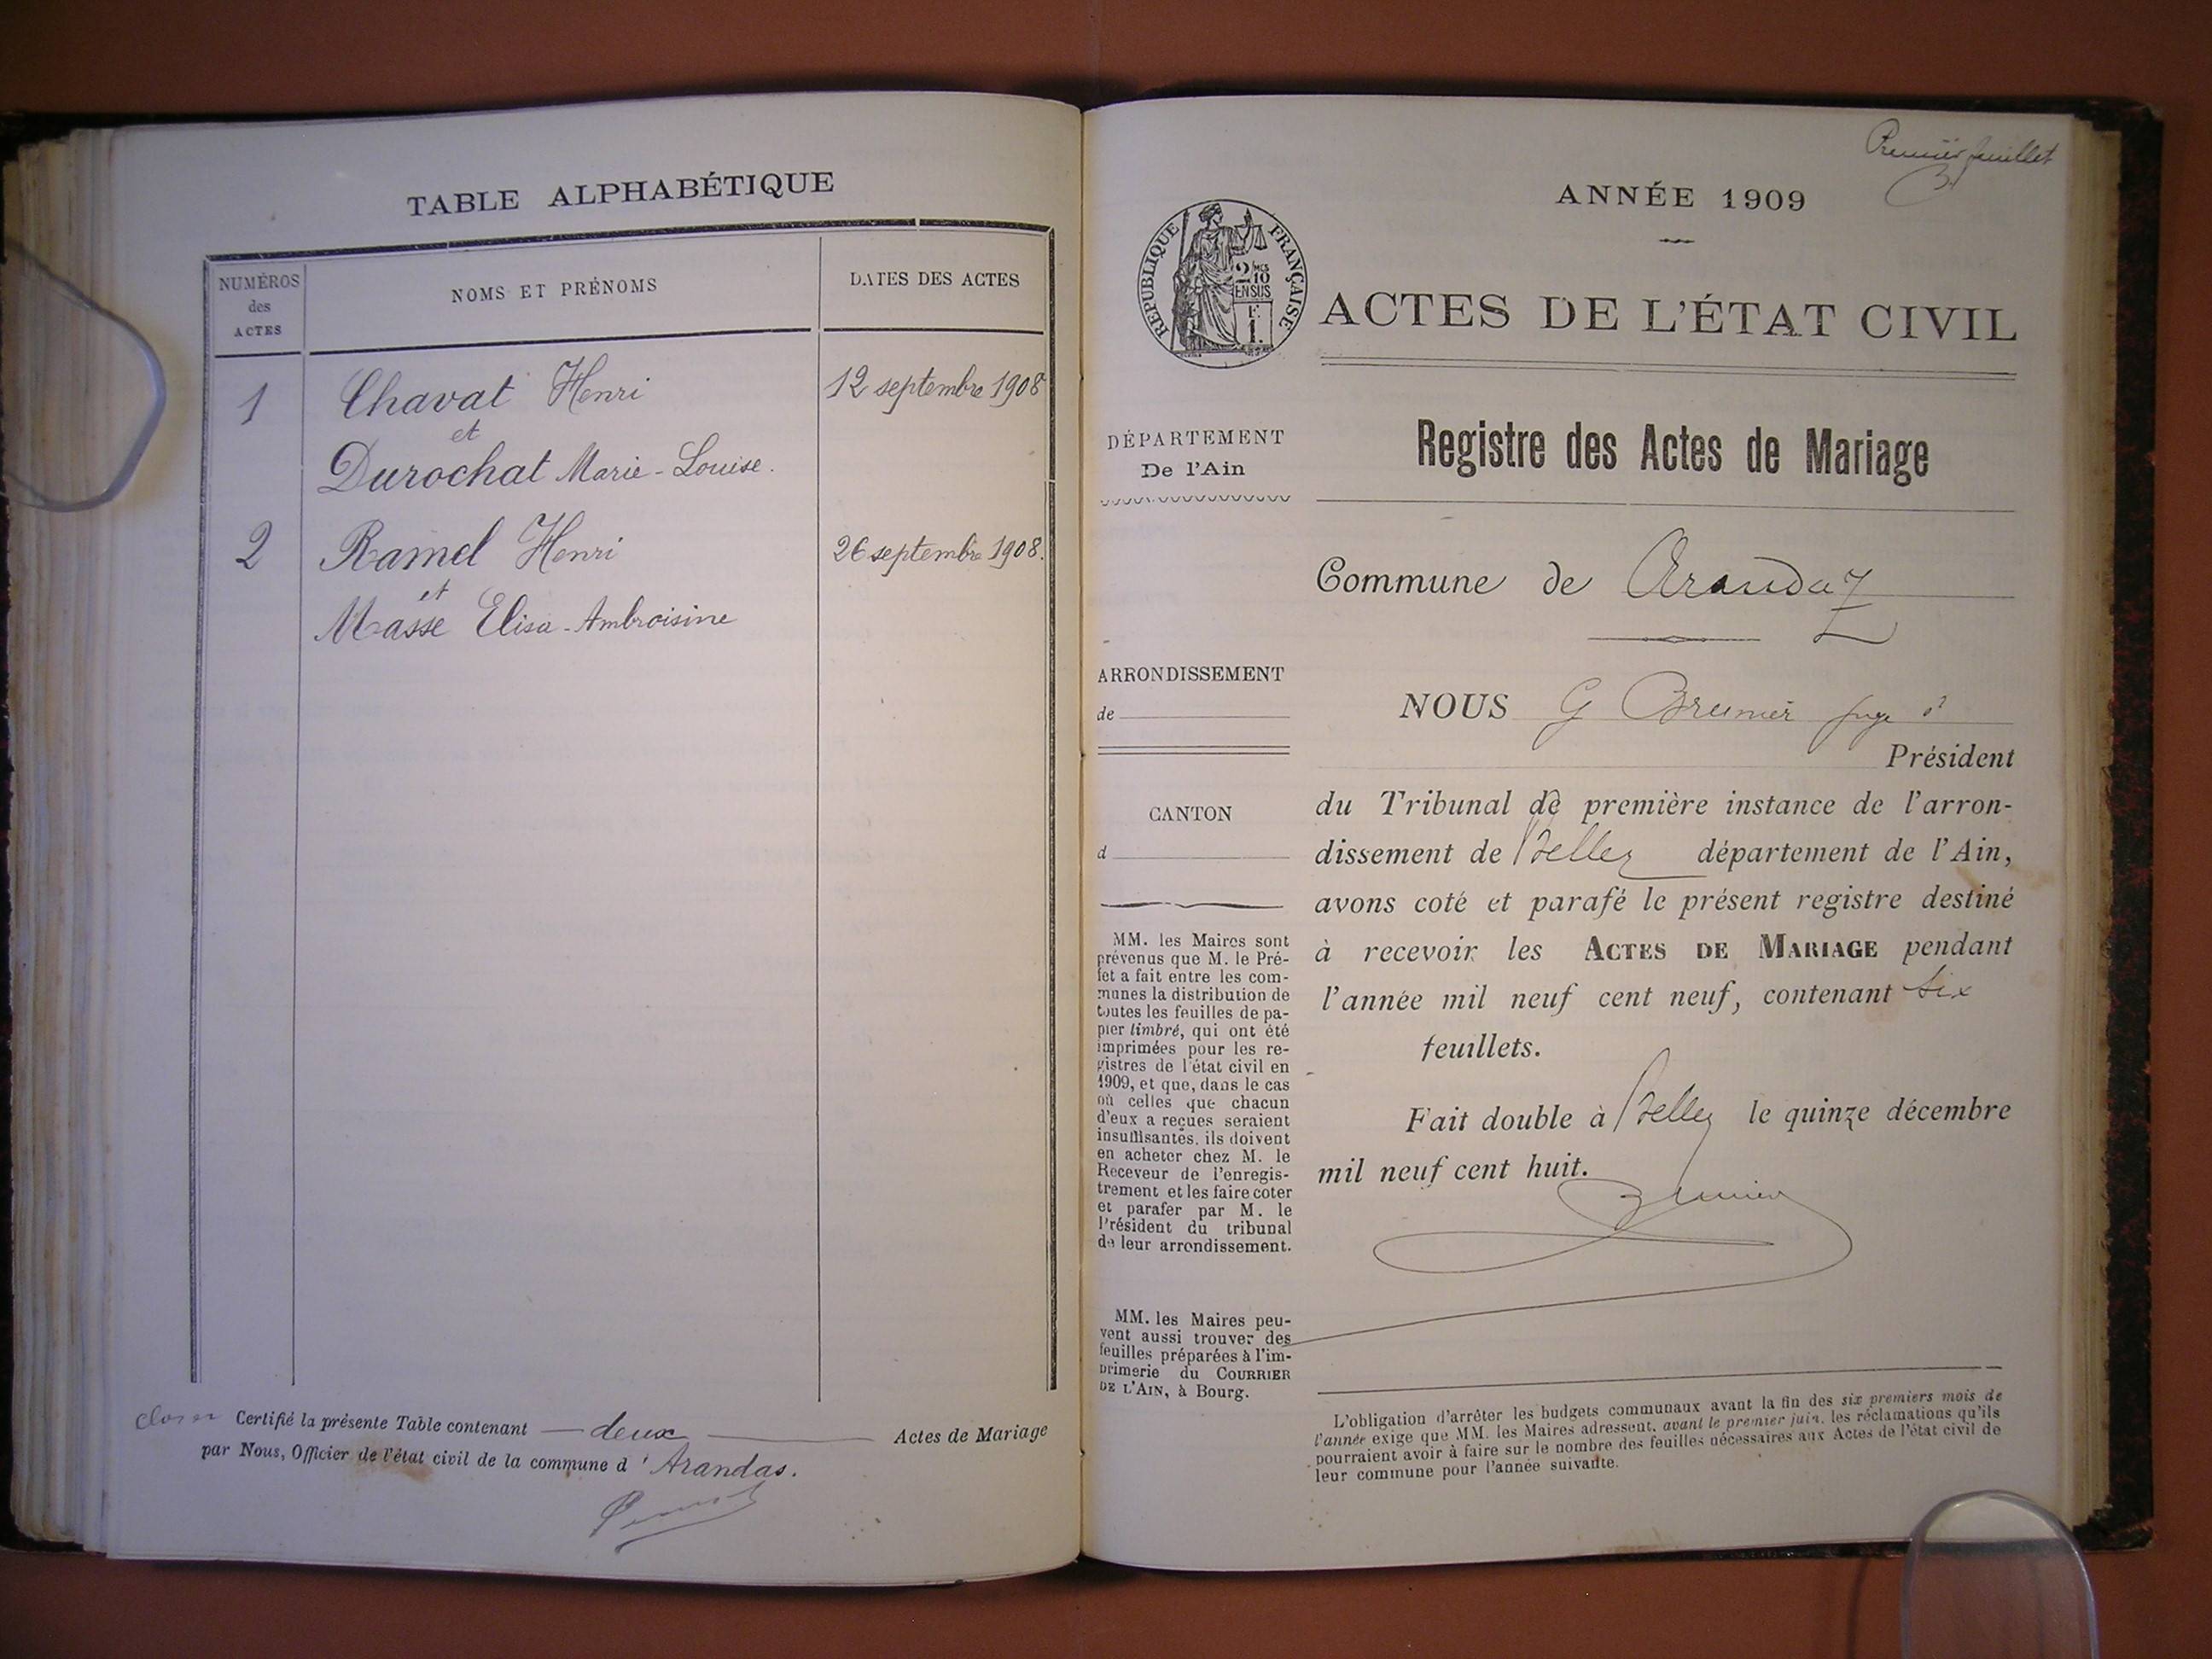 TABLE ALPHABÉTIQUE
NUMÉROS
des
ACTES
NOMS ET PRÉNOMS
DATES DES ACTES
1
Chavat Henri
12 septembre 1908
et
Durochat Marie-Louise.
2
Ramel Henri
26 septembre 1908.
et
Masse Elisa-Ambroisine
Certifié la présente Table contenant — deux — Actes de Mariage
par Nous, Officier de l'état civil de la commune d' Arandas.
Premier feuillet
ANNÉE 1909
RÉPUBLIQUE FRANÇAISE
2/10
EN SUS
F.
1.
ACTES DE L'ÉTAT CIVIL
DÉPARTEMENT
De l'Ain
ARRONDISSEMENT
de
CANTON
d
MM. les Maires sont
prévenus que M. le Pré-
fet a fait entre les com-
munes la distribution de
toutes les feuilles de pa-
pier timbré, qui ont été
imprimées pour les re-
gistres de l'état civil en
1909, et que, dans le cas
où celles que chacun
d'eux a reçues seraient
insuffisantes, ils doivent
en acheter chez M. le
Receveur de l'enregis-
trement et les faire coter
et parafer par M. le
Président du tribunal
de leur arrondissement.
MM. les Maires peu-
vent aussi trouver des
feuilles préparées à l'im-
primerie du COURRIER
DE L'AIN, à Bourg.
Registre des Actes de Mariage
Commune de Arandaz
NOUS G Brunier juge
Président
du Tribunal de première instance de l'arron-
dissement de Belley département de l'Ain,
avons coté et parafé le présent registre destiné
à recevoir les ACTES DE MARIAGE pendant
l'année mil neuf cent neuf, contenant six
feuillets.
Fait double à Belley le quinze décembre
mil neuf cent huit.
Brunier
L'obligation d'arrêter les budgets communaux avant la fin des six premiers mois de
l'année exige que MM. les Maires adressent, avant le premier juin, les réclamations qu'ils
pourraient avoir à faire sur le nombre des feuilles nécessaires aux Actes de l'état civil de
leur commune pour l'année suivante.